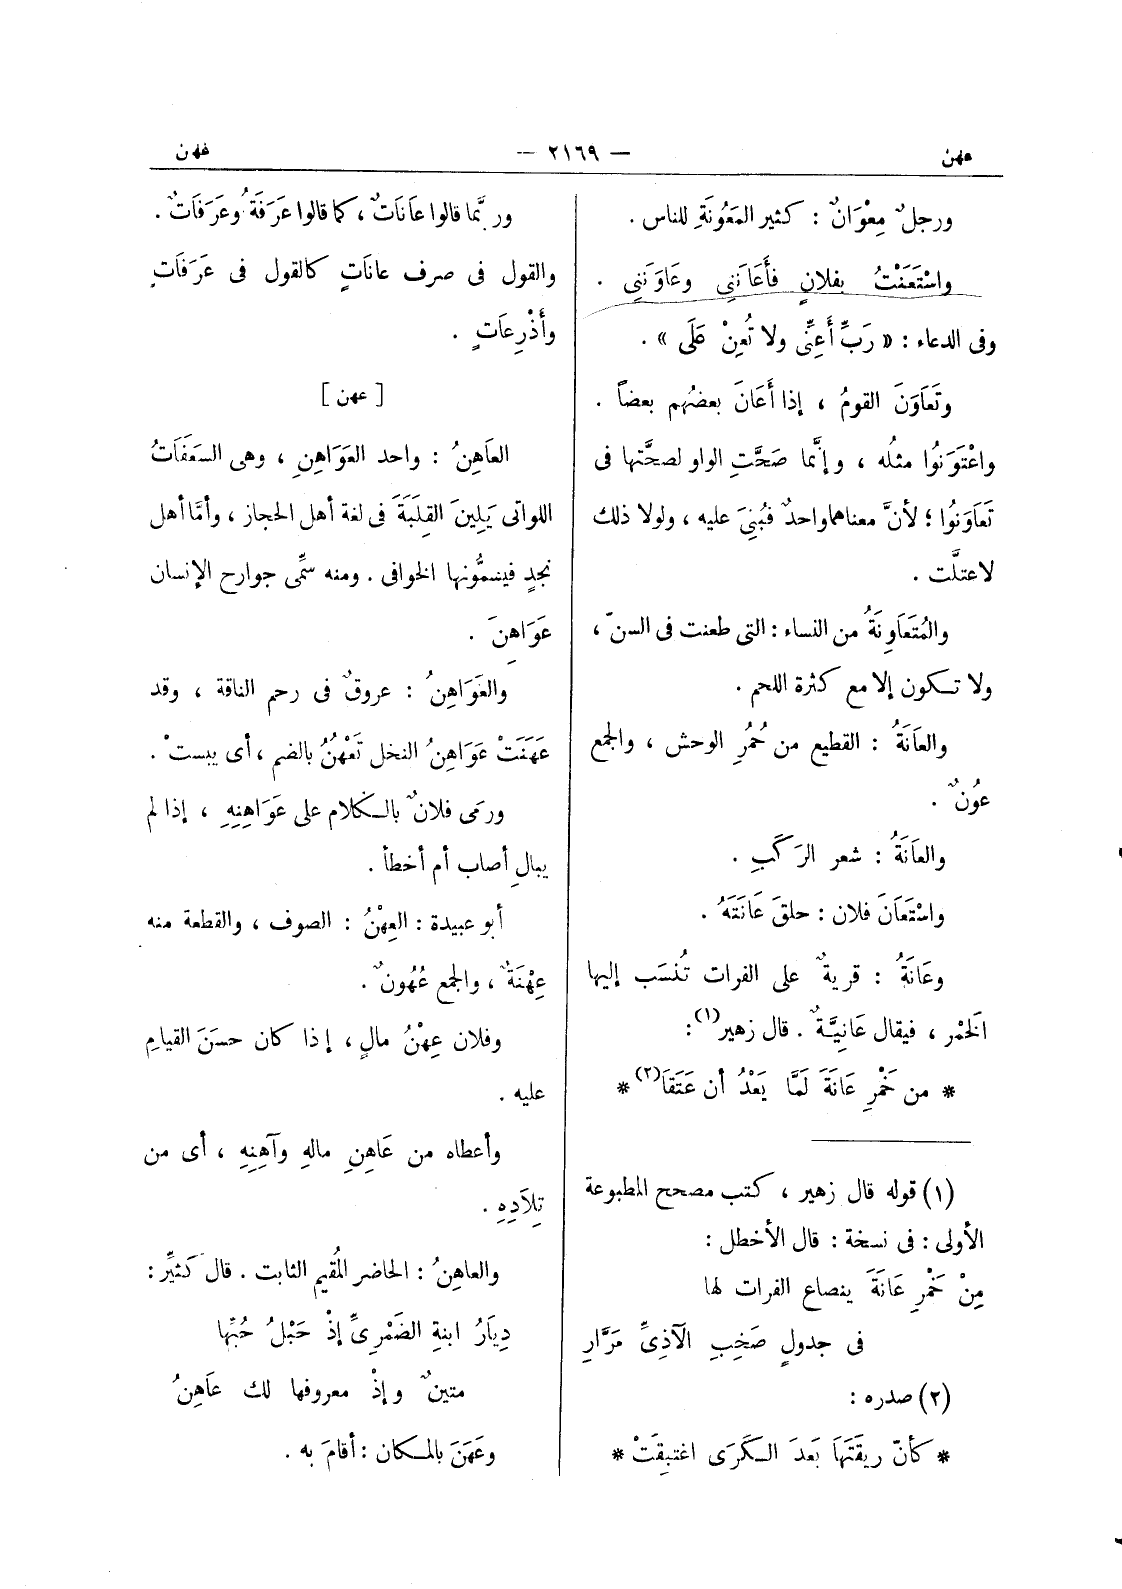 عهن — ٢١٦٩ — عهن
ورجلٌ مِعْوَانٌ : كثير المَعُونَةِ للناس .
واسْتَعَنْتُ بفلانٍ فأَعَانَنِى وعَاوَنَنِى .
وفى الدعاء : « رَبِّ أَعِنِّى ولا تُعِنْ عَلَى » .
وتَعَاوَنَ القومُ ، إذا أَعَانَ بعضُهم بعضاً .
واعْتَوَنُوا مثلُه ، وإنَّما صَحَّتِ الواو لصحَّتها فى
تَعَاوَنُوا ؛ لأنَّ معناهما واحدٌ فبُنِىَ عليه ، ولولا ذلك
لاعتلَّت .
والمُتَعَاوِنَةُ من النساء : التى طعنت فى السنّ ،
ولا تكون إلا مع كثرة اللحم .
والعَانَةُ : القطيع من حُمُرِ الوحش ، والجمع
عُونٌ .
والعَانَةُ : شعر الرَكَبِ .
واسْتَعَانَ فلان : حلقَ عَانَتَهُ .
وعَانَةُ : قريةٌ على الفرات تُنْسَب إليها
الخمْر ، فيقال عَانِيَّةٌ . قال زهير(١) :
* من خَمْرِ عَانَةَ لَمَّا يَعْدُ أن عَتَقَا(٢) *
(١) قوله قال زهير ، كتب مصحح المطبوعة
الأولى : فى نسخة : قال الأخطل :
مِنْ خَمْرِ عَانَةَ ينصاع الفرات لها
فى جدولٍ صَخِبِ الآذِىِّ مَرَّارِ
(٢) صدره :
* كأنّ ريقَتَهَا بَعدَ الكَرَى اغتبِقَتْ *
وربَّما قالوا عَانَاتٌ ، كما قالوا عَرَفَةُ وعَرَفَاتٌ .
والقول فى صرف عانَاتٍ كالقول فى عَرَفَاتٍ
وأَذْرِعَاتٍ .
[ عهن ]
العَاهِنُ : واحد العَوَاهِنِ ، وهى السَعَفَاتُ
اللواتى يَلِينَ القِلَبَةَ فى لغة أهل الحجاز ، وأمَّا أهل
نجدٍ فيسمُّونها الخوافى . ومنه سمِّى جوارح الإنسان
عَوَاهِنَ .
والعَوَاهِنُ : عروقٌ فى رحم الناقة ، وقد
عَهَنَتْ عَوَاهِنُ النخل تَعْهُنُ بالضم ، أى يبستْ .
ورمَى فلانٌ بالكلام على عَوَاهِنِهِ ، إذا لم
يبالِ أصاب أم أخطأ .
أبو عبيدة : العِهْنُ : الصوف ، والقطعة منه
عِهْنَةٌ ، والجمع عُهُونٌ .
وفلان عِهْنُ مالٍ ، إذا كان حسَنَ القيامِ
عليه .
وأعطاه من عَاهِنِ مالهِ وآهِنِهِ ، أى من
تِلاَدِهِ .
والعاهِنُ : الحاضر المُقيم الثابت . قال كثيِّر :
دِيَارُ ابنةِ الضَمْرِىِّ إذْ حَبْلُ حُبِّها
متينٌ وإذْ معروفها لك عَاهِنُ
وعَهَنَ بالمكان : أقامَ به .